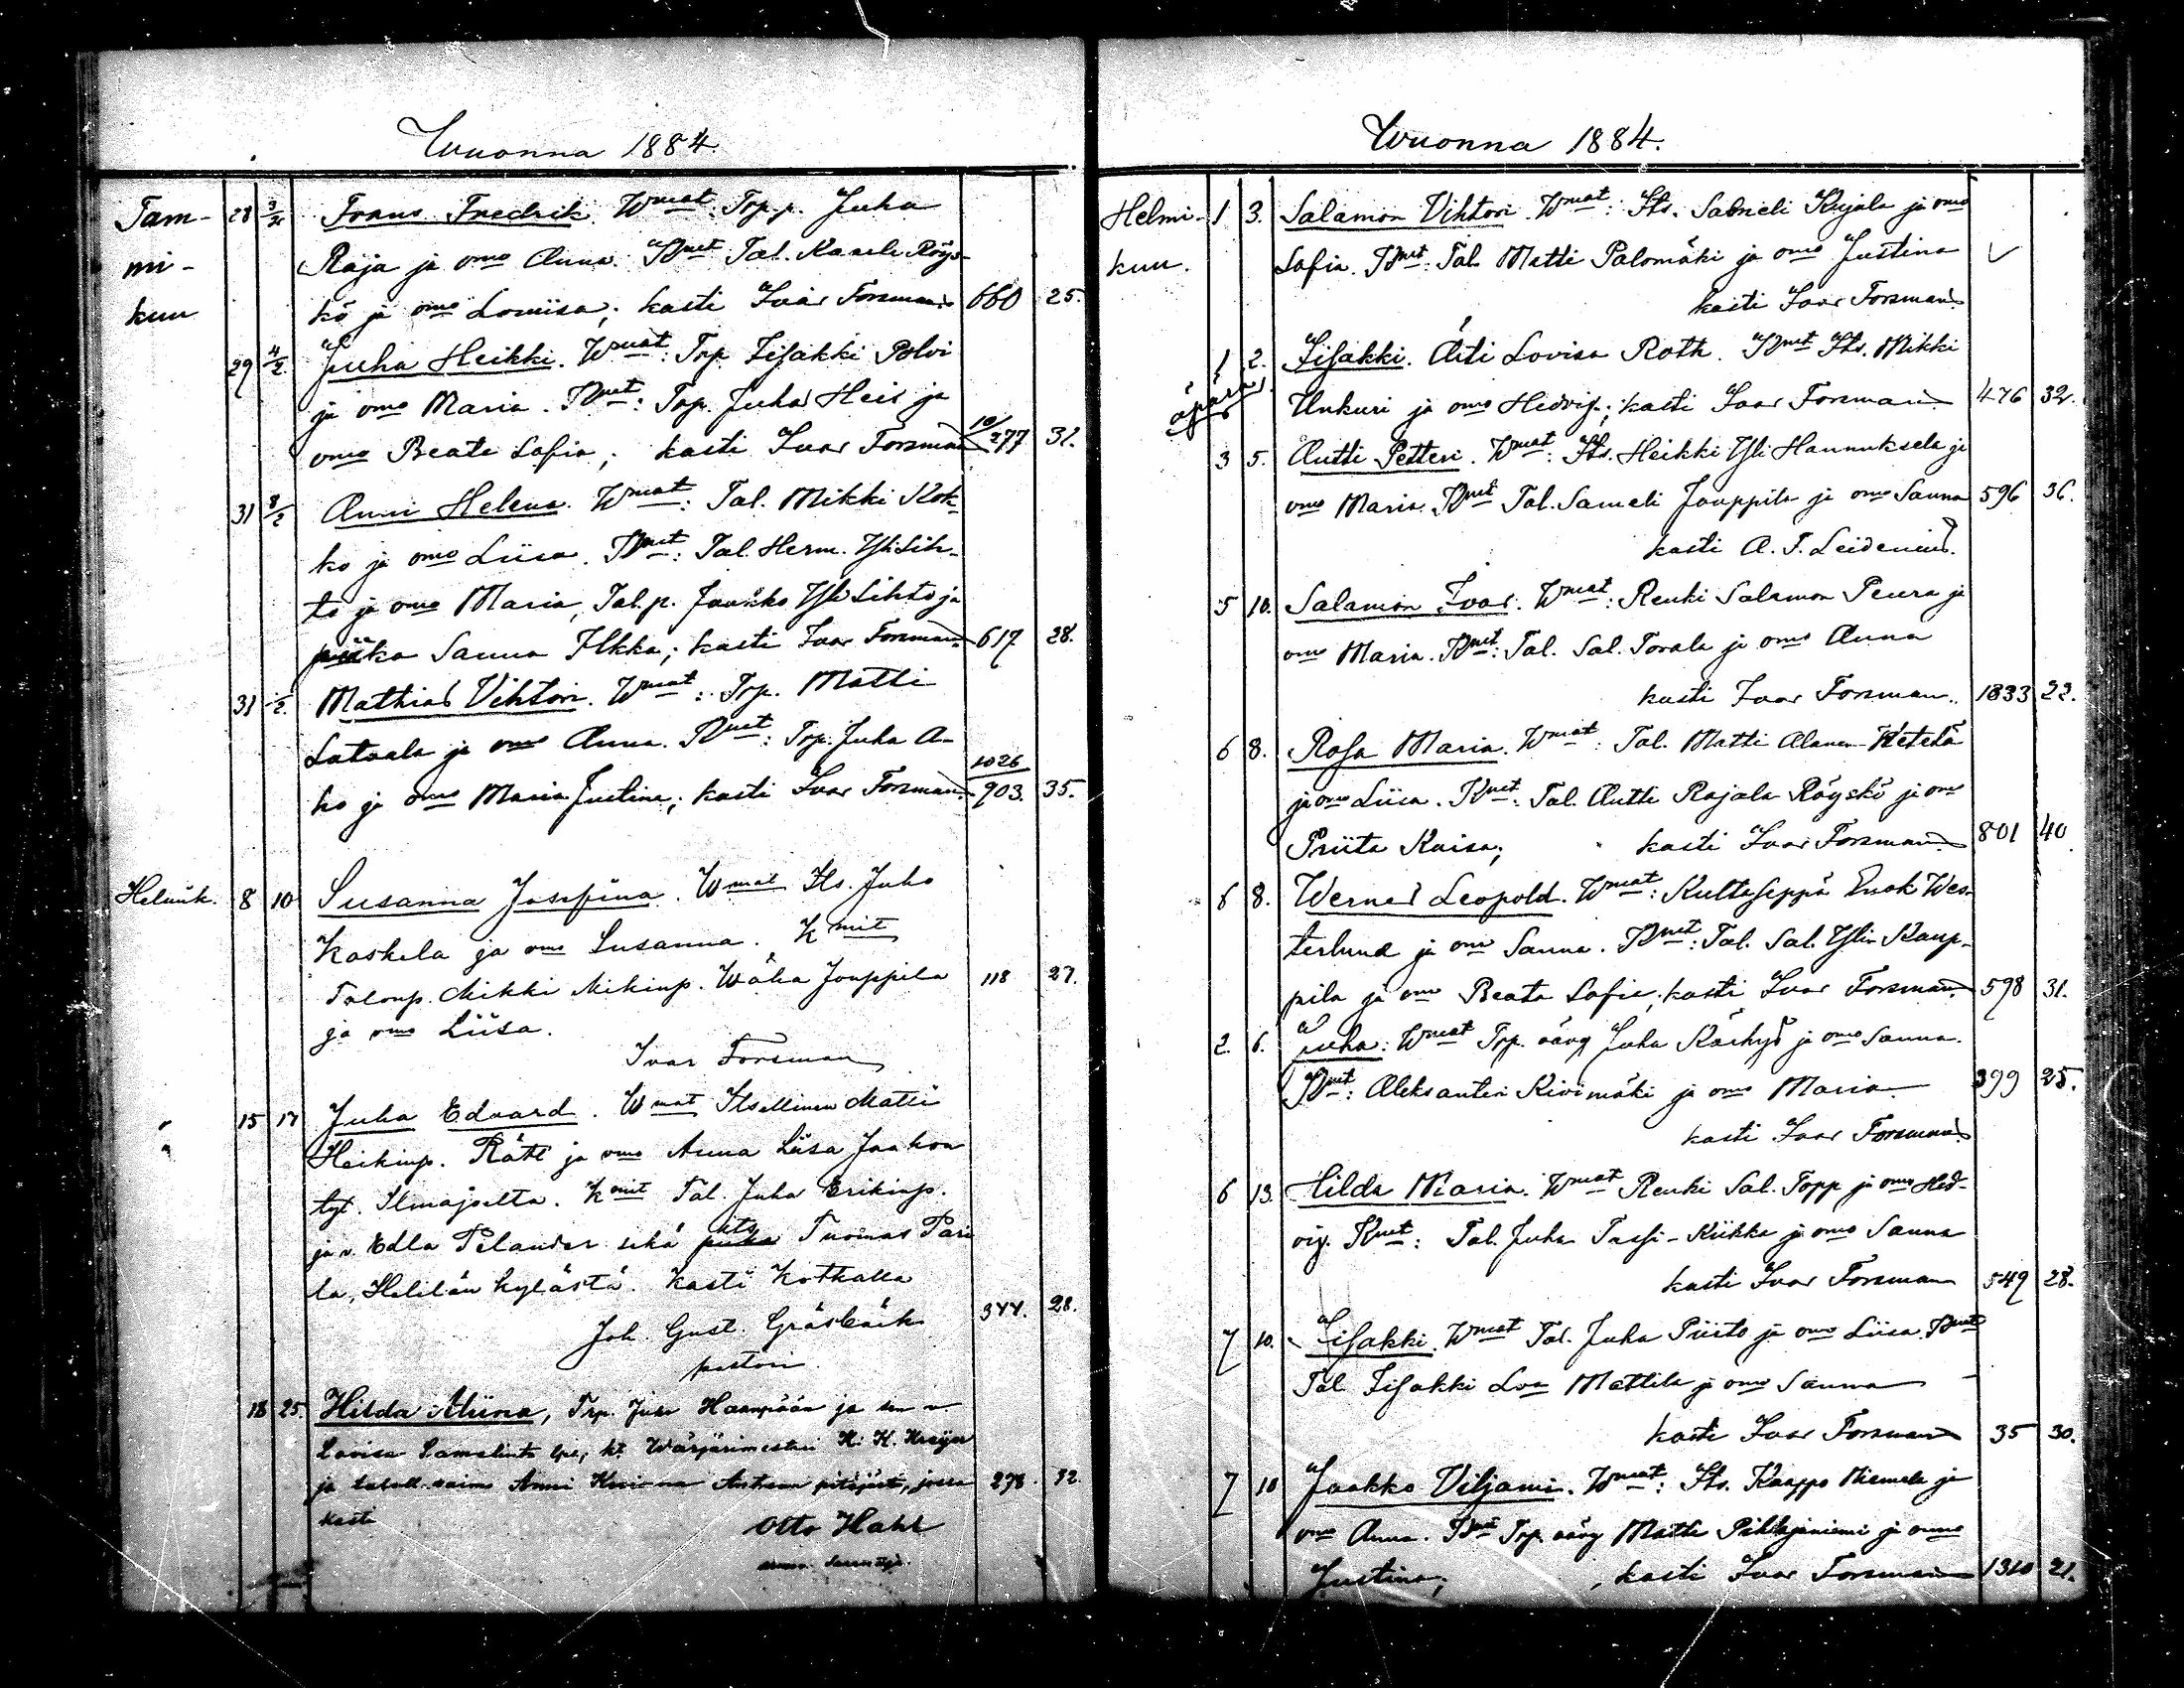 Wuonna 1884.
Tam- 28 3/2 Frans Fredrik. Wmat: Trp. p. Juha
mi- Raja ja omo Anna. Kmit Tal. Kaarle Röys-
kuu kö ja omo Lowiisa; kasti Ivar Forsman 660 25.
29 4/2 Juha Heikki. Wmat: Trp. Iisakki Polvi
ja omo Maria. Kmit: Trp. Juha Heis ja
omo Beata Sofia; kasti Ivar Forsman 10/277 31.
31 8/2 Anni Helena. Wmat: Tal. Mikki Kok-
ko ja omo Liisa. Kmit: Tal. Herm. Yli Sih-
to ja omo Maria, Tal. p. Jaakko Yli Sihto ja
piika Sanna Ilkka; kasti Ivar Forsman 617 28.
31 /2. Mathias Vihtori. Wmat: Trp. Matti
Latvala ja omo Anna. Kmit: Trp. Juha A-
ho ja omo Maria Justina; kasti Ivar Forsman 1026/903. 35.
Helmik. 8 10 Susanna Josefina. Wmat Its. Juho
Koskela ja omo Susanna. Kmit
Talonp. Mikki Mikinp. Wäha Jouppila 118 27.
ja omo Liisa.
Ivar Forsman
15 17 Juha Edvard. Wmat Itsellinen Matti
Heikinp. Rätt ja omo Anna Liisa Jaakon
tyt. Ilmajoelta. Kmit Tal. Juha Erikinp.
ja v. Edla Pelander sekä its Tuomas Pari
la, Helilän kylästä. Kasti Kotkalla
Joh. Gust. Gräsbäck 344. 28.
pastori
18 25. Hilda Miina, Trp. Juho Haanpään ja sen v.
Lovisa ja kt. Wärjärimestari K. H.
ja Anni Antrean pitäjästä, jossa 278. 32.
kasti Otto Hahl

Wuonna 1884.
Helmi- 1 3. Salamon Vihtori. Wmat: Its. Sabrieli Kujala ja omo
kuu. Sofia. Kmit: Tal. Matti Palomäki ja omo Justina
kasti Ivar Forsman
1 2. Iisakki. Äiti Lovisa Roth. Kmit Its. Mikki
äpärä Unkuri ja omo Hedvig; kasti Ivar Forsman 476 32.
3 5. Antti Petteri. Wmat: Its. Heikki Yli Hannuksela ja
omo Maria. Kmit Tal. Sameli Jouppila ja omo Sanna 596 36.
kasti A. F. Leidenius.
5 10. Salamon Ivar. Wmat: Renki Salamon Peura ja
omo Maria. Kmit: Tal. Sal. Torala ja omo Anna
kasti Ivar Forsman. 1833 22.
6 8. Rosa Maria. Wmat: Tal. Matti Alanen-Ketelä
ja omo Liisa. Kmit: Tal. Antti Rajala Röyskö ja omo
Priita Kaisa; kasti Ivar Forsman 801 40
6 8. Werner Leopold. Wmat: Kultaseppä Enok Wes-
terlund ja omo Sanna. Kmit: Tal. Sal. Yli-Kaup-
pila ja omo Beata Sofia; kasti Ivar Forsman 598 31.
2. 6. Juha: Wmat Trp. vävy Juha Kärhys ja omo Sanna.
Kmit: Aleksanteri Kivimäki ja omo Maria 399 25.
kasti Ivar Forsman
6 13. Hilda Maria. Wmat Renki Sal. Topp ja omo Hed-
vig. Kmit: Tal. Juha Passi-Kiikka ja omo Sanna
kasti Ivar Forsman 549 28.
7 10. Iisakki. Wmat Tal. Juha Piisto ja omo Liisa. Kmit
Tal. Iisakki Loa Mattila ja omo Sanna
kasti Ivar Forsman 35 30.
7 10 Jaakko Viljami. Wmat: Its. Kaappo Niemela ja
omo Anna. Kmit Trp. vävy Matti Pihlajaniemi ja omo
Justina; kasti Ivar Forsman 1310 21.